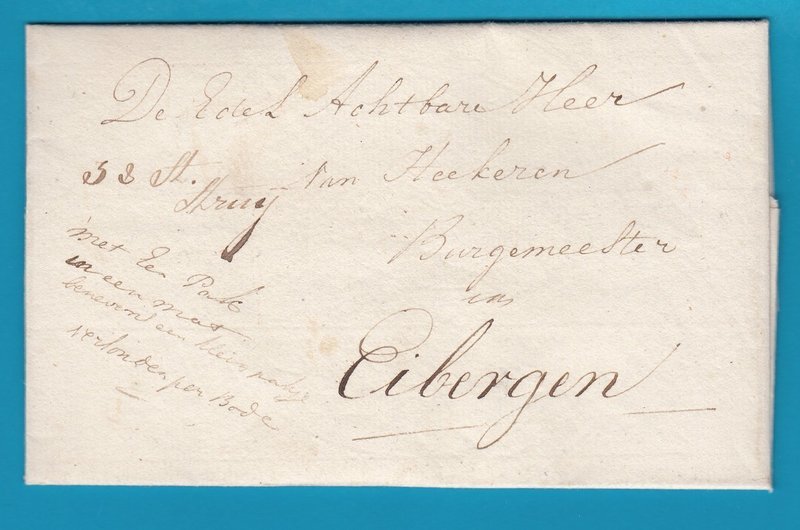 De Edel Achtbare Heer
Van Heekeren
Burgemeester
in
Eibergen
38 St.
met Een Pak
in een mat
benevens een klein pakje
verzonden per Bode